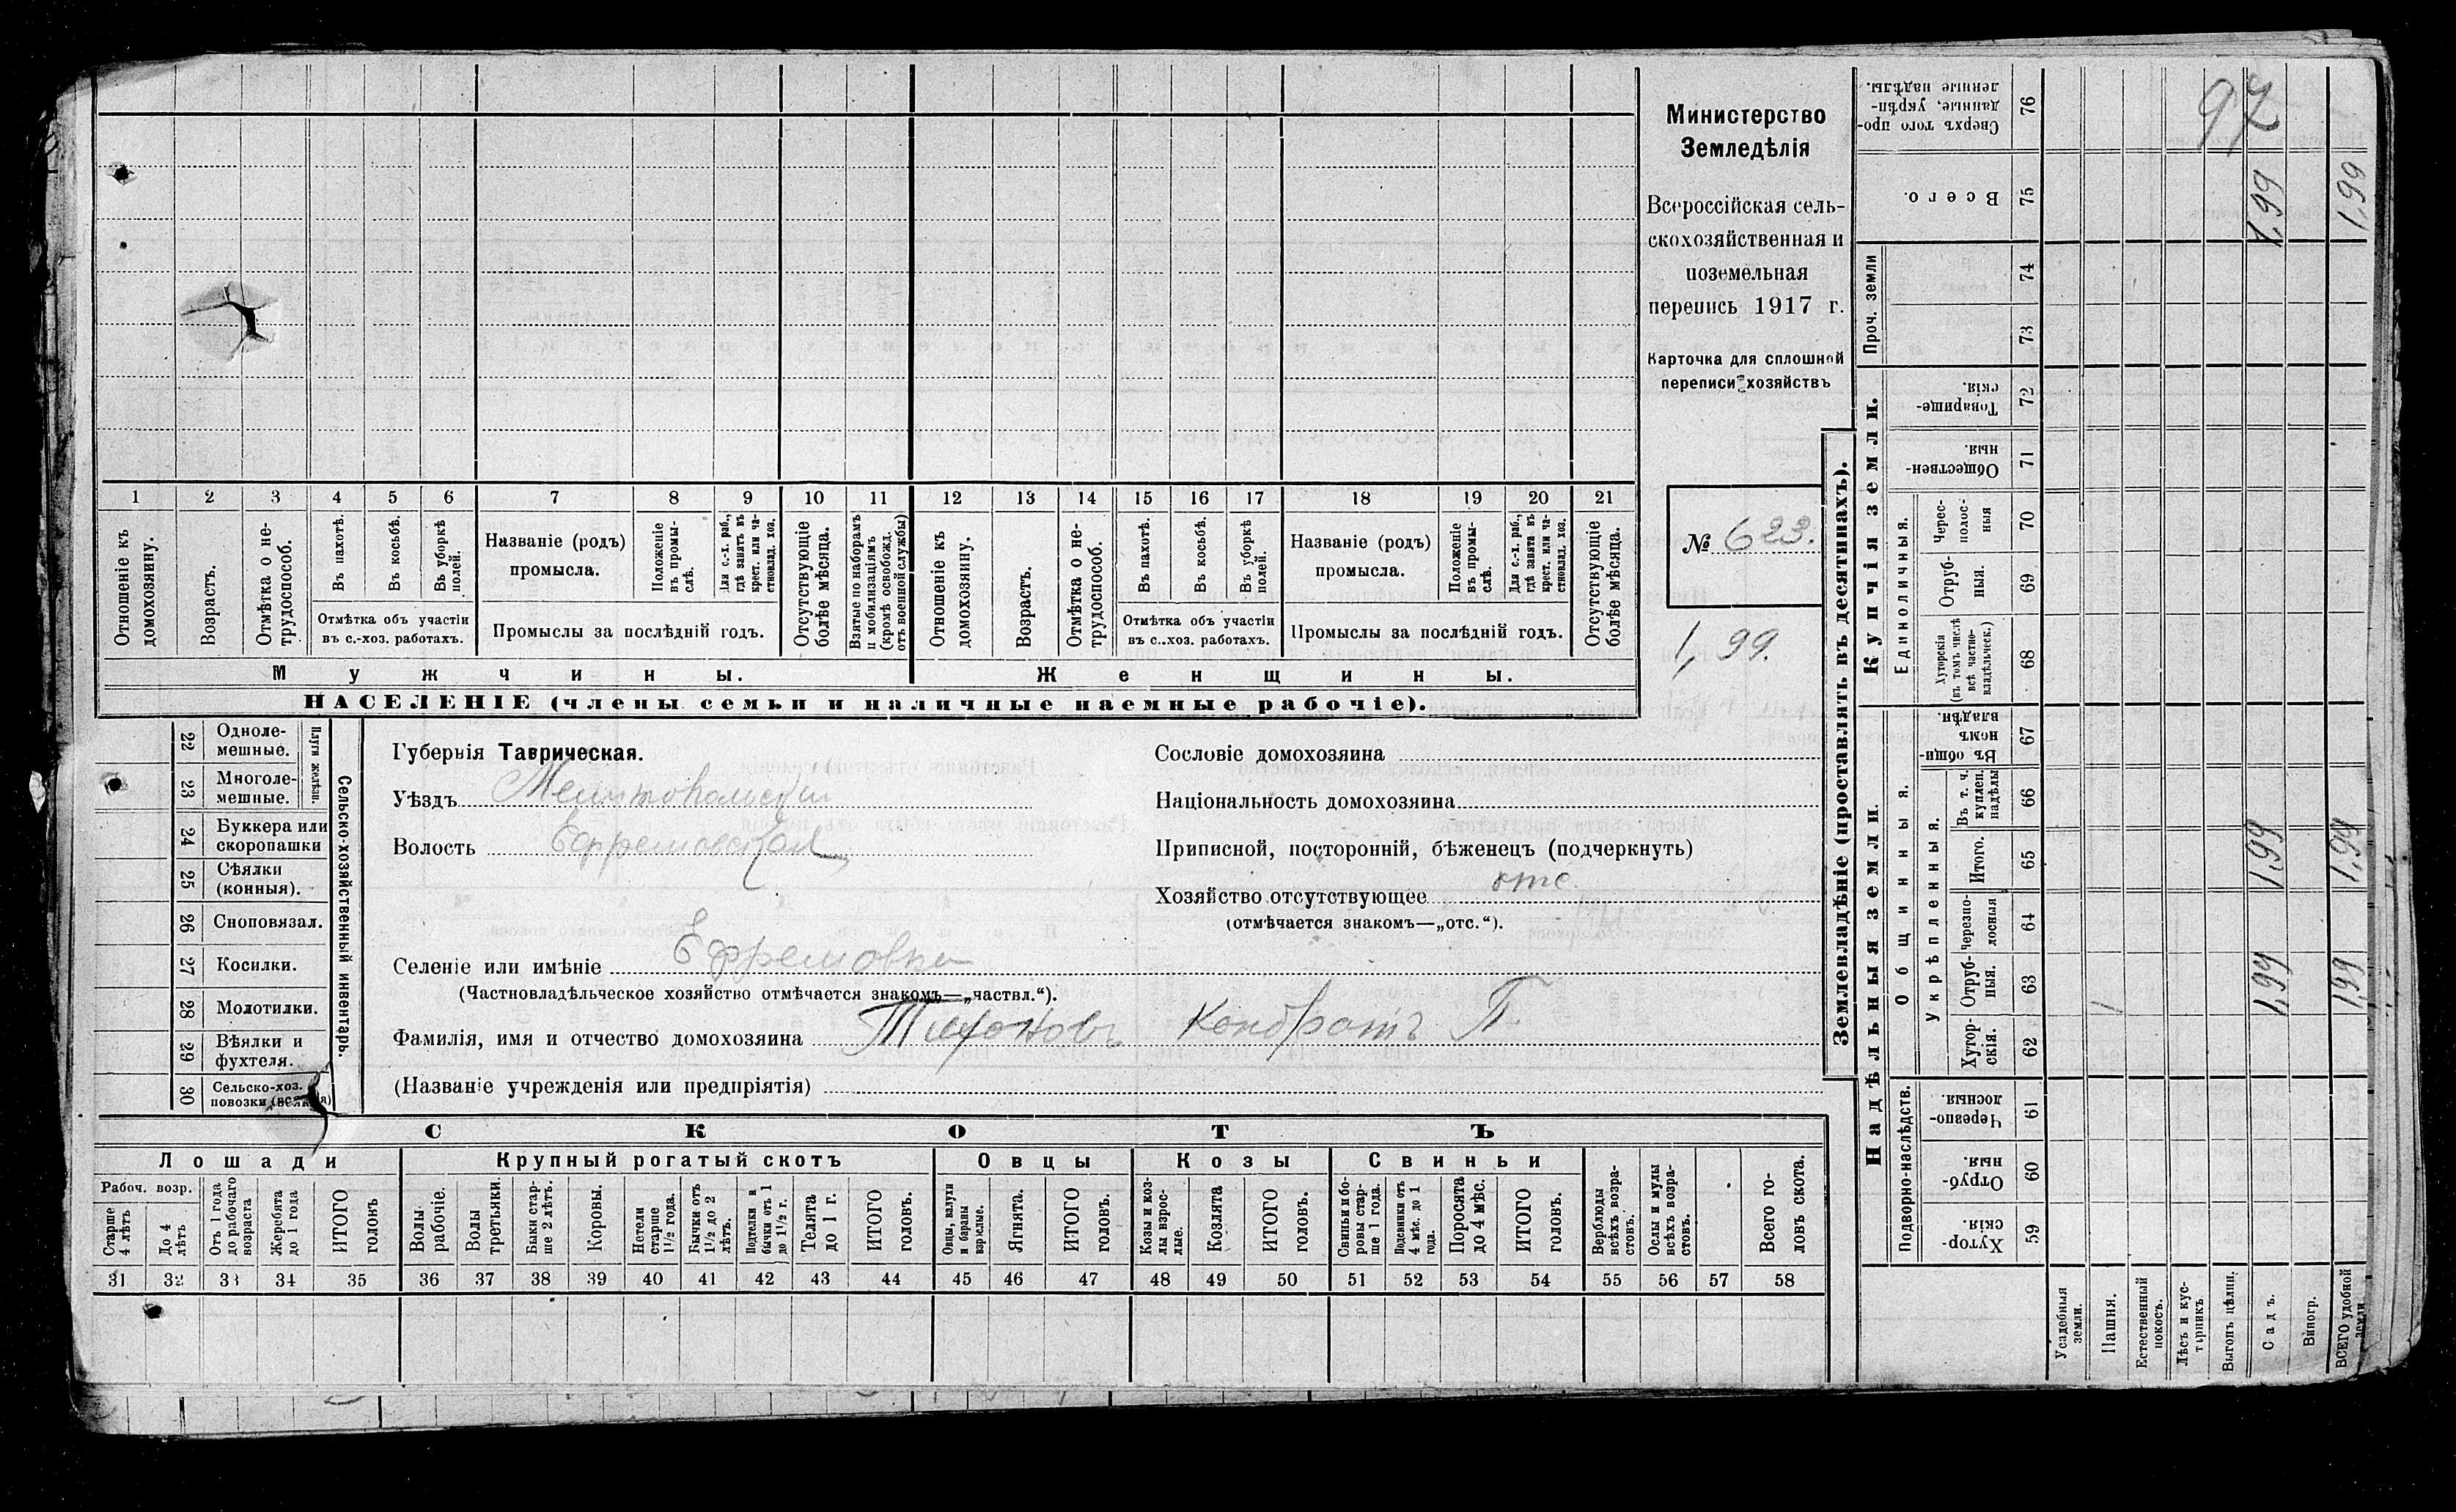 Министерство
Земледѣлія
Всероссійская сель-
скохозяйственная и
поземельная
перепись 1917 г.
Карточка для сплошной
переписи хозяйствъ
№ 623.
1,99.
1 2 3 4 5 6 7 8 9 10 11 12 13 14 15 16 17 18 19 20 21
Отношеніе къ домохозяину.
Возрастъ.
Отмѣтка о не-трудоспособ.
Въ пахотѣ.
Въ косьбѣ.
Въ уборкѣ полей.
Отмѣтка объ участіи
въ с.-хоз. работахъ.
Названіе (родъ)
промысла.
Положеніе въ промы-слѣ.
Для с.-х. раб., гдѣ занятъ въ крест. или ча-стновлад. хоз.
Промыслы за послѣдній годъ.
Отсутствующіе болѣе мѣсяца.
Взятые по наборамъ и мобилизаціямъ (кромѣ освобожд. отъ военной службы)
Отношеніе къ домохозяину.
Возрастъ.
Отмѣтка о не-трудоспособ.
Въ пахотѣ.
Въ косьбѣ.
Въ уборкѣ полей.
Отмѣтка объ участіи
въ с.-хоз. работахъ.
Названіе (родъ)
промысла.
Положеніе въ промы-слѣ.
Для с.-х. раб., гдѣ занята въ крест. или ча-стновлад. хоз.
Промыслы за послѣдній годъ.
Отсутствующіе болѣе мѣсяца.
Мужчины.
Женщины.
НАСЕЛЕНІЕ (члены семьи и наличные наемные рабочіе).
Сельско-хозяйственный инвентарь.
Плуги желѣзн.
22 Одноле-мешные.
23 Многоле-мешные.
24 Буккера или скоропашки
25 Сѣялки (конныя).
26 Сноповязал.
27 Косилки.
28 Молотилки.
29 Вѣялки и фухтеля.
30 Сельско-хоз. повозки
Губернія Таврическая.
Уѣздъ Мелитопольскій
Волость Ефремовская
Селеніе или имѣніе Ефремовка
(Частновладѣльческое хозяйство отмѣчается знакомъ—„частвл.“).
Фамилія, имя и отчество домохозяина Тихоновъ Кондратъ П.
(Названіе учрежденія или предпріятія)
Сословіе домохозяина
Національность домохозяина
Приписной, посторонній, бѣженецъ (подчеркнуть)
Хозяйство отсутствующее отс.
(отмѣчается знакомъ—„отс.“).
СКОТЪ
Лошади
Крупный рогатый скотъ
Овцы
Козы
Свиньи
Рабоч. возр.
Старше 4 лѣтъ
До 4 лѣтъ
Отъ 1 года до рабочаго возраста
Жеребята до 1 года
ИТОГО головъ
Волы рабочіе.
Волы третьяки.
Быки стар-ше 2 лѣтъ.
Коровы.
Нетели старше 1½ года.
Бычки отъ 1½ до 2 лѣтъ.
Подтелки и бычки отъ 1 до 1½ г.
Телята до 1 г.
ИТОГО головъ.
Овцы, валухи и бараны взрослые.
Ягнята.
ИТОГО головъ.
Козы и коз-лы взрос-лые.
Козлята
ИТОГО головъ.
Свиньи и бо-ровы стар-ше 1 года.
Подсвинки отъ 4 мѣс. до 1 года.
Поросята до 4 мѣс.
ИТОГО головъ.
Верблюды всѣхъ возра-стовъ.
Ослы и мулы всѣхъ возра-стовъ.
Всего го-ловъ скота.
31 32 33 34 35 36 37 38 39 40 41 42 43 44 45 46 47 48 49 50 51 52 53 54 55 56 57 58
Землевладѣніе (проставлять въ десятинахъ).
Надѣльныя земли.
Купчія земли.
Проч. земли
Подворно-наслѣдств.
Общинныя.
Укрѣпленныя.
Единоличныя.
59 Хутор-скія.
60 Отруб-ныя.
61 Черезпо-лосныя.
62 Хутор-скія.
63 Отруб-ныя. 1,99 1,99
64 Черезпо-лосныя
65 Итого. 1,99 1,99
66 Въ т. ч. куплен. надѣлы
67 Въ общи-номъ владѣн.
68 Хуторскія (въ томъ числѣ всѣ частно-владѣльческ.)
69 Отруб-ныя.
70 Черес-полос-ныя
71 Обществен-ныя.
72 Товарище-скія.
73
74
75 Всего. 1,99 1,99
76 Сверхъ того про-данные, укрѣп-ленные надѣлы.
97
Усадебныя земли.
Пашня.
Естественный покосъ.
Лѣсъ и кус-тарникъ.
Выгонъ цѣлин.
Садъ.
Виногр.
ВСЕГО удобной земли